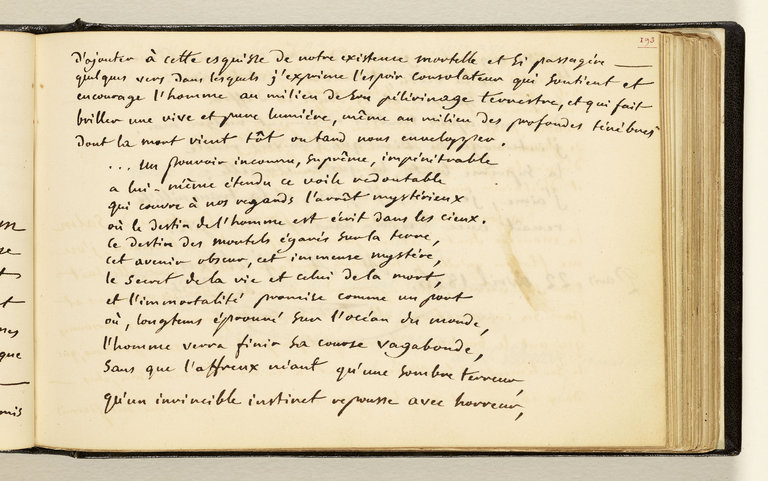 193
D'ajouter à cette esquisse de notre existence mortelle et si passagère —
quelques vers dans lesquels j'exprime l'espoir consolateur qui soutient et
encourage l'homme au milieu de son pélérinage terrestre, et qui fait
briller une vive et pure lumière, même au milieu des profondes ténèbres
dont la mort vient tôt ou tard nous envelopper.
... Un pouvoir inconnu, suprême, impénétrable
a lui-même étendu ce voile redoutable
qui couvre à nos regards l'arrêt mystérieux
où le destin de l'homme est écrit dans les cieux.
Ce destin des mortels égarés sur la terre,
cet avenir obscur, cet immense mystère,
le secret de la vie et celui de la mort,
et l'immortalité promise comme un port
où, longtems éprouvé sur l'océan du monde,
l'homme verra finir sa course vagabonde,
sans que l'affreux néant qu'une sombre terreur,
qu'un invincible instinct repousse avec horreur,
que
mis